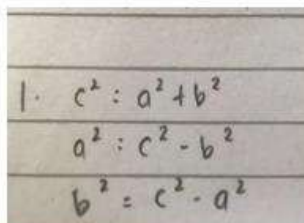 1. c² : a² + b²
a² : c² - b²
b² = c² - a²